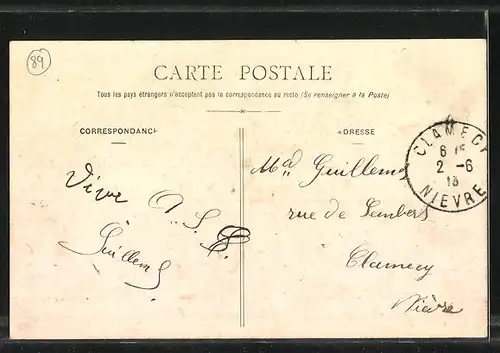 89
CARTE POSTALE
Tous les pays étrangers n'acceptent pas la correspondance au recto (Se renseigner à la Poste)
CORRESPONDANCE
ADRESSE
CLAMECY
6 15
2 - 6
13
NIEVRE
Guillemo
rue de
Clamecy
Nièvre